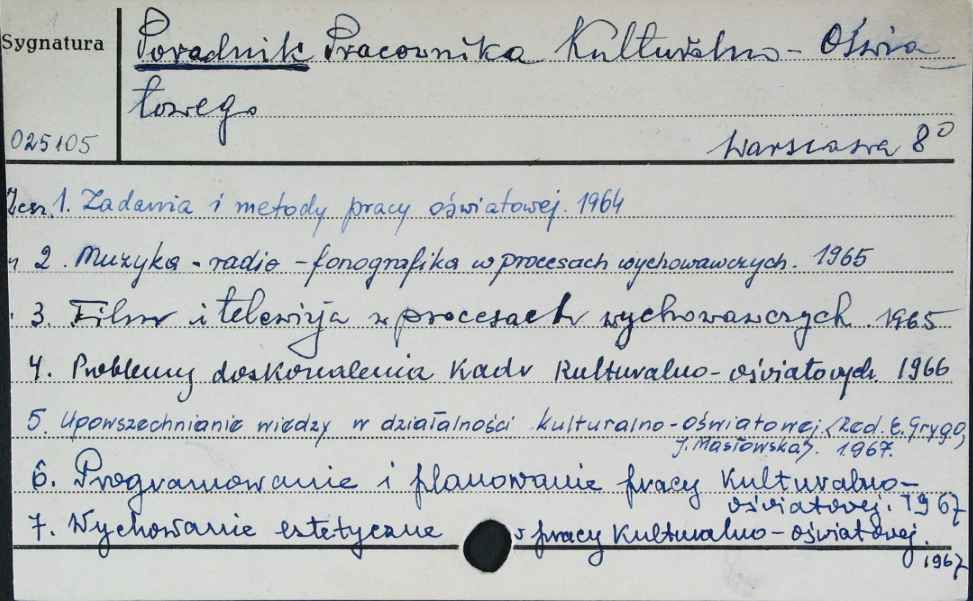 Sygnatura
Poradnik Pracownika Kulturalno - Oświa
towego
025105
Warszawa 8°
Zesz. 1. Zadania i metody pracy oświatowej. 1964
" 2. Muzyka - radio - fonografika w procesach wychowawczych. 1965
3. Film i telewizja w procesach wychowawczych. 1965
4. Problemy doskonalenia kadr kulturalno - oświatowych. 1966
5. Upowszechnianie wiedzy w działalności kulturalno - oświatowej. (Red. E. Grygo,
J. Masłowska). 1967.
6. Programowanie i planowanie pracy kulturalno-
oświatowej. 1967
7. Wychowanie estetyczne w pracy kulturalno - oświatowej.
1967